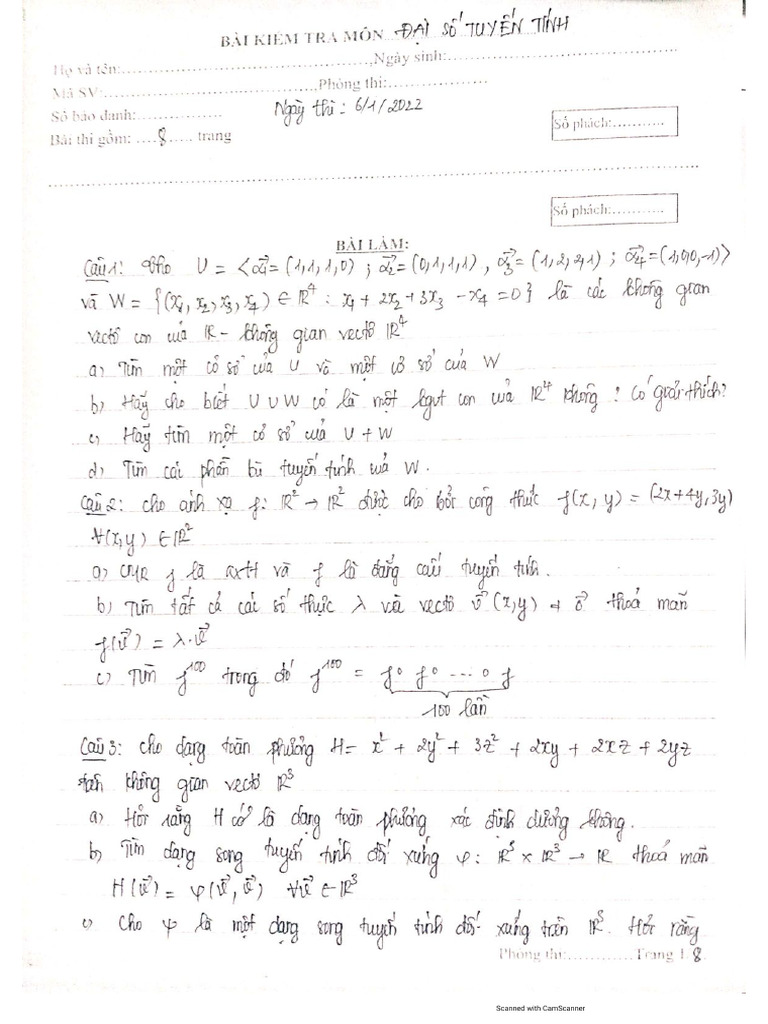 BÀI KIỂM TRA MÔN ĐẠI SỐ TUYẾN TÍNH
Họ và tên:..............................,Ngày sinh:..................
Mã SV:..............................,Phòng thi:..................
Số báo danh:................ Ngày thi: 6/1/2022
Bài thi gồm: ....8..... trang
Số phách:...........
Số phách:...........
BÀI LÀM:
Câu 1: Cho U = <α⃗1 = (1,1,1,0) ; α⃗2 = (0,1,1,1) , α⃗3 = (1,2,2,1) ; α⃗4 = (1,0,0,-1)>
và W = {(x1, x2, x3, x4) ∈ ℝ^4 : x1 + 2x2 + 3x3 - x4 = 0} là các không gian
vectơ con của ℝ - không gian vectơ ℝ^4
a) Tìm một cơ sở của U và một cơ sở của W
b) Hãy cho biết U ∪ W có là một kgvt con của ℝ^4 không ? Có giải thích?
c) Hãy tìm một cơ sở của U + W
d) Tìm các phần bù tuyến tính của W.
Câu 2: cho ánh xạ f: ℝ^2 → ℝ^2 được cho bởi công thức f(x, y) = (2x+4y, 3y)
∀(x,y) ∈ ℝ^2
a) CMR f là axtt và f là đẳng cấu tuyến tính.
b) Tìm tất cả các số thực λ và vectơ v⃗ (x,y) ≠ 0⃗ thoả mãn
f(v⃗) = λ.v⃗
c) Tìm f^100 trong đó f^100 = f∘ f∘ ... ∘ f
100 lần
Câu 3: cho dạng toàn phương H = x^2 + 2y^2 + 3z^2 + 2xy + 2xz + 2yz
trên không gian vectơ ℝ^3
a) Hỏi rằng H có là dạng toàn phương xác định dương không.
b) Tìm dạng song tuyến tính đối xứng φ : ℝ^3 × ℝ^3 → ℝ thoả mãn
H(v⃗) = φ(v⃗, v⃗) ∀v⃗ ∈ ℝ^3
c) Cho ψ là một dạng song tuyến tính đối xứng trên ℝ^3. Hỏi rằng
Phòng thi:.............Trang 1/8
Scanned with CamScanner